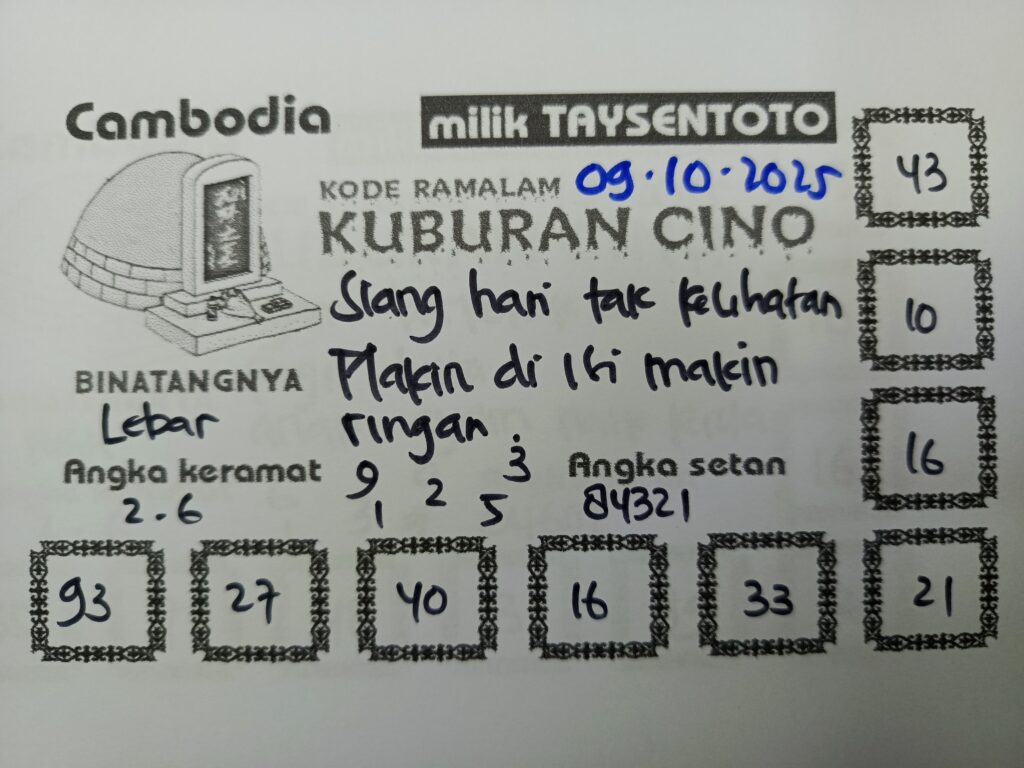 Cambodia
milik TAYSENTOTO
KODE RAMALAM 09.10.2025
KUBURAN CINO
Siang hari tak kelihatan
Makin di isi makin
ringan.
BINATANGNYA
Lebar
Angka keramat
2.6
9 2 3
1 5
Angka setan
84321
43
10
16
93 27 40 16 33 21